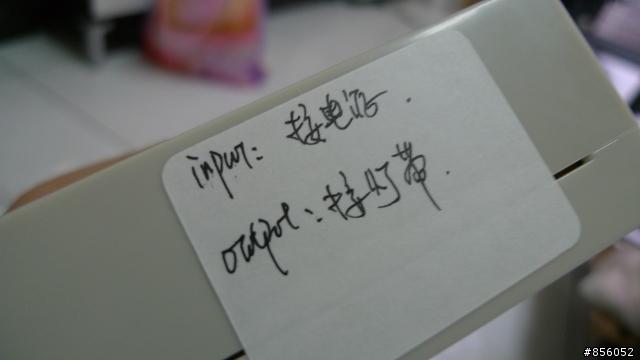 input: 接电源.
output: 接灯带.
#856052